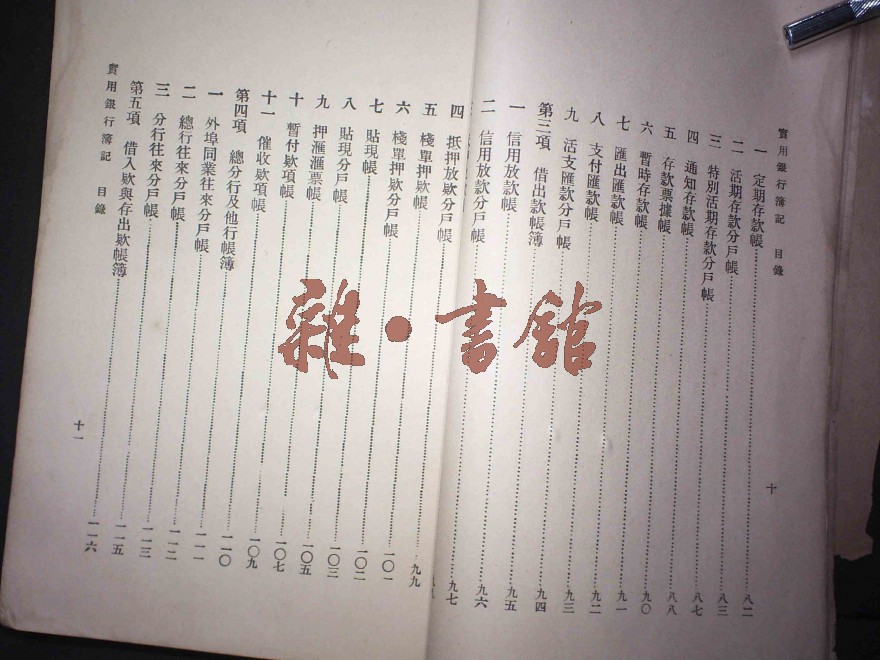 實用銀行簿記 目錄
一 定期存款帳……八二
二 活期存款分戶帳……八三
三 特別活期存款分戶帳……八七
四 通知存款帳……八八
五 存款票據帳……九〇
六 暫時存款帳……九一
七 匯出匯款帳……九二
八 支付匯款帳……九三
九 活支匯款分戶帳……九四
第三項 借出款帳簿……九五
一 信用放款帳……九六
二 信用放款分戶帳……九七
十
四 抵押放款分戶帳……九九
五 棧單押款帳……一〇一
六 棧單押款分戶帳……一〇二
七 貼現帳……一〇三
八 貼現分戶帳……一〇五
九 押滙滙票帳……一〇七
十 暫付款項帳……一〇九
十一 催收款項帳……一一〇
第四項 總分行及他行帳簿……一一一
一 外埠同業往來分戶帳……一一二
二 總行往來分戶帳……一一三
三 分行往來分戶帳……一一五
第五項 借入款與存出款帳簿……一一六
實用銀行簿記 目錄
十一
雜·書館